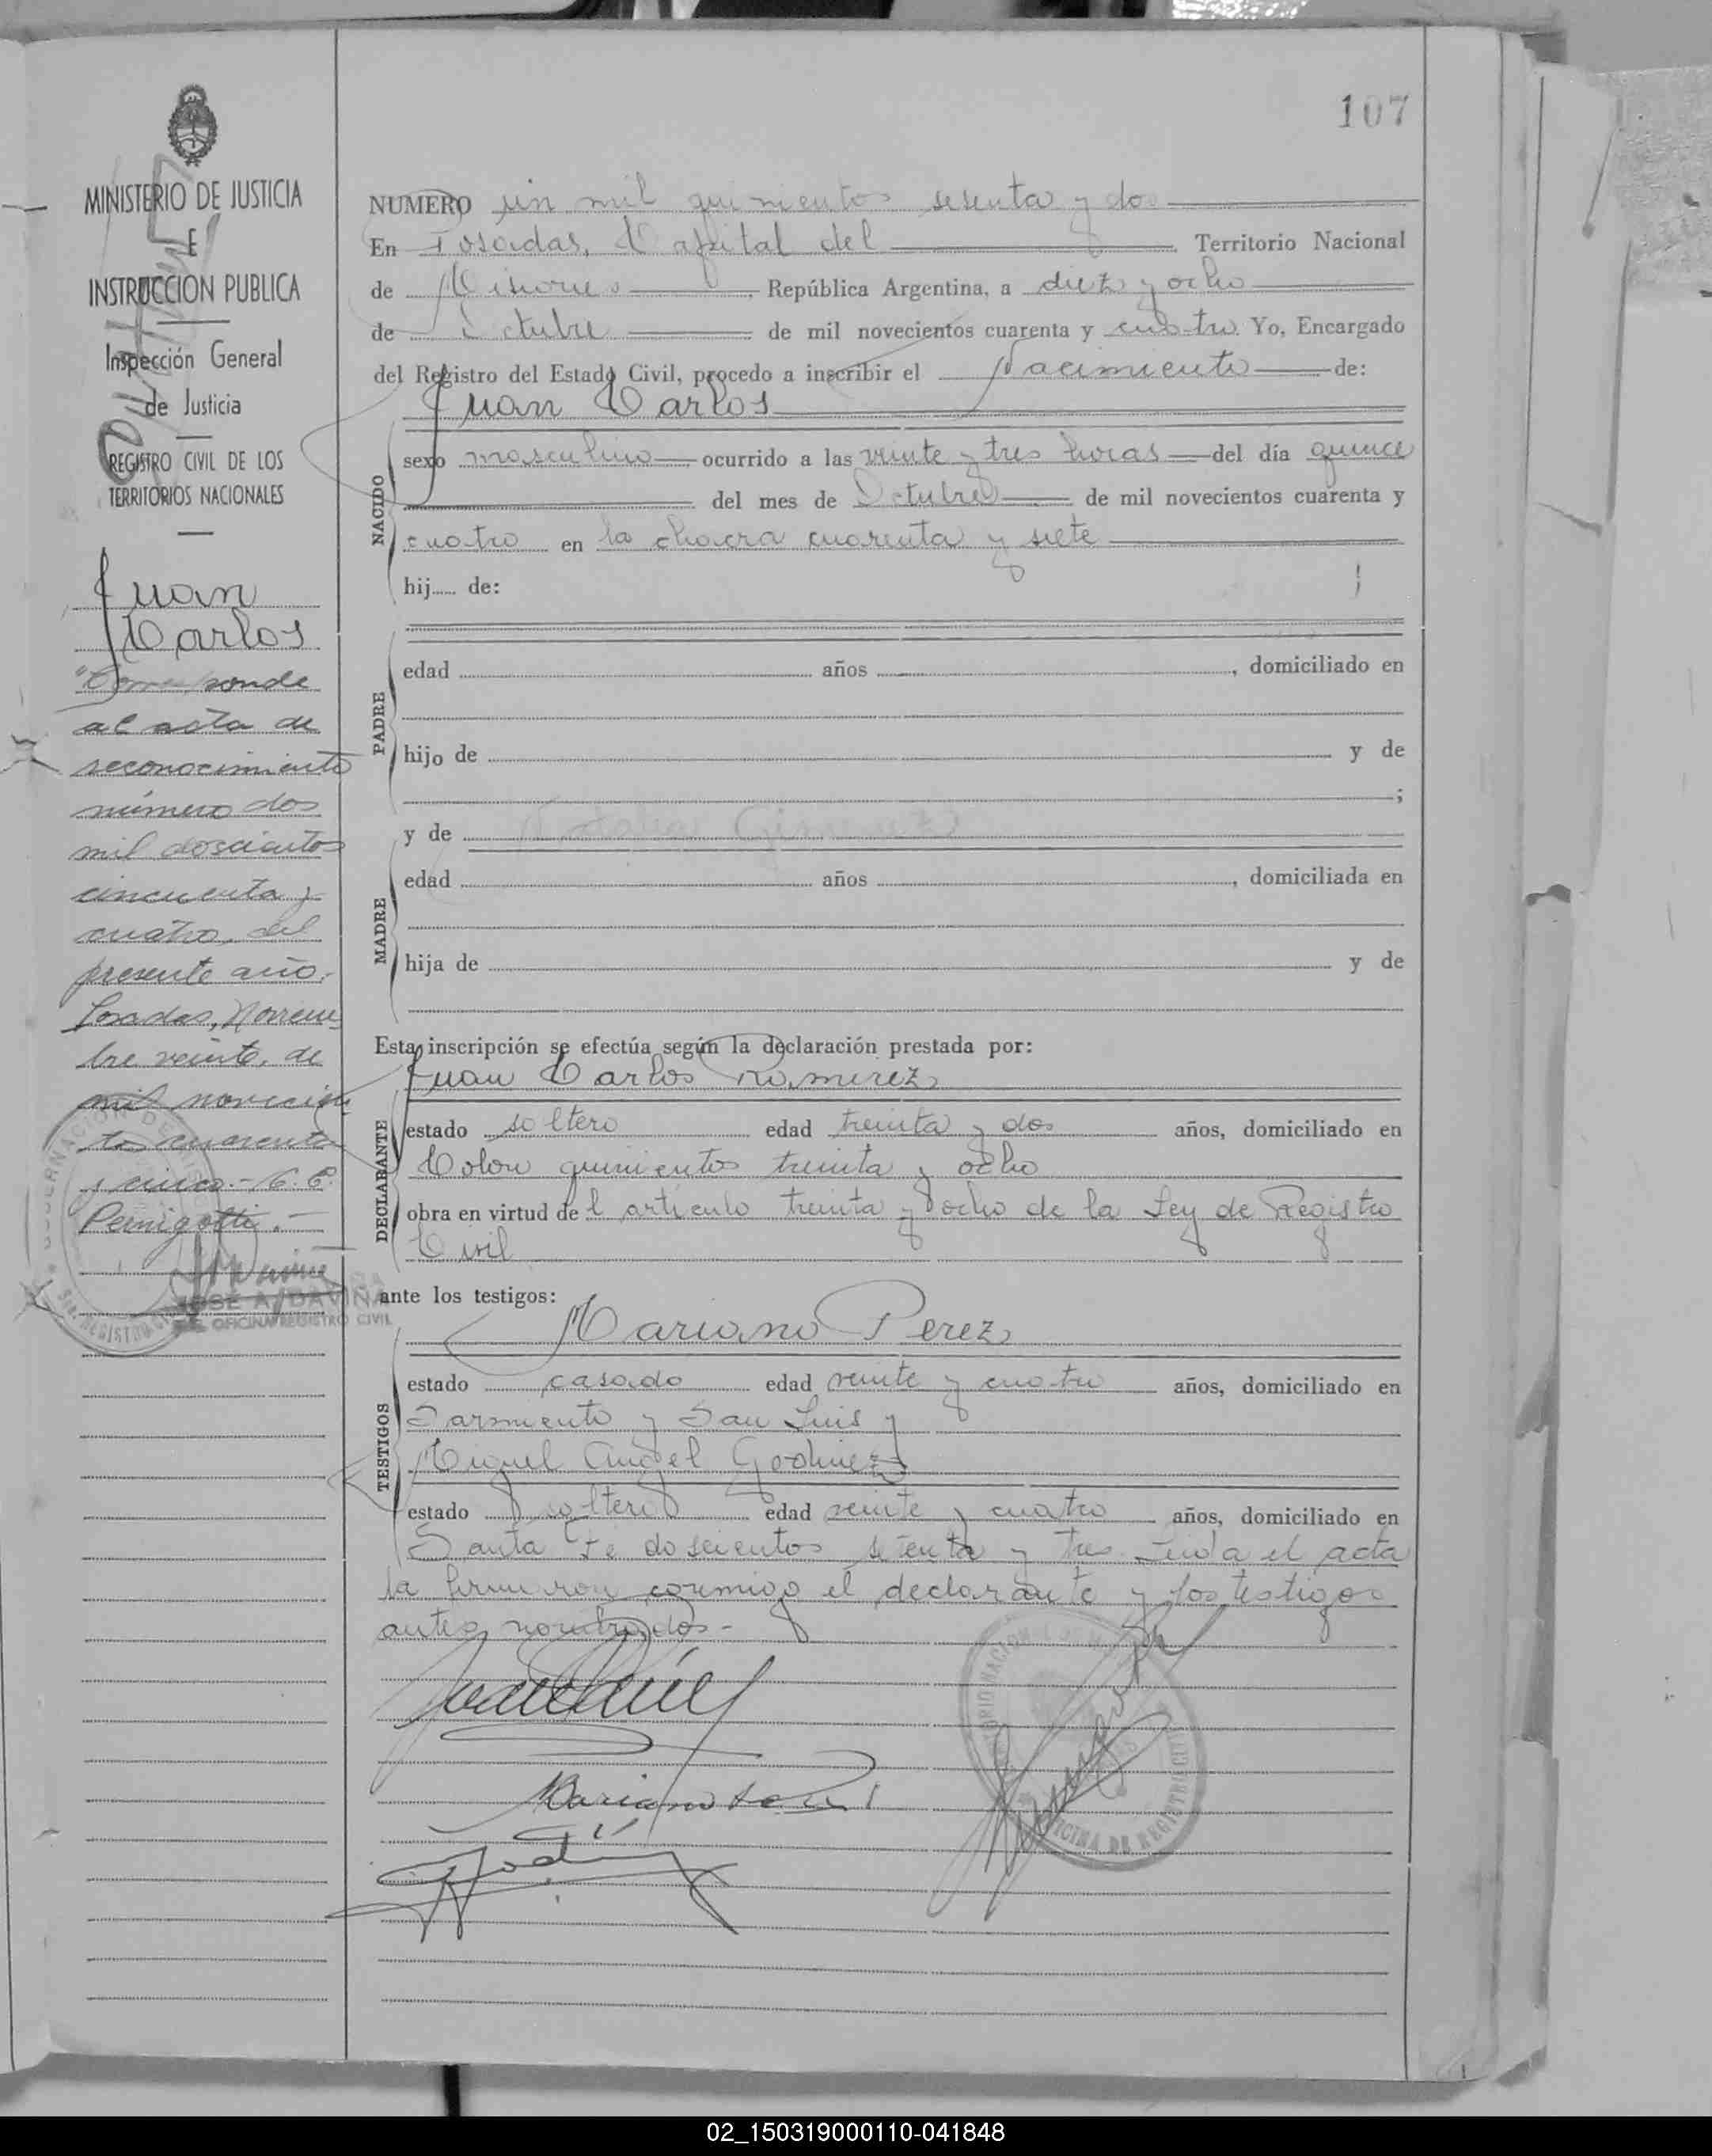 107
MINISTERIO DE JUSTICIA
E
INSTRUCCION PUBLICA
Inspección General
de Justicia
REGISTRO CIVIL DE LOS
TERRITORIOS NACIONALES
Juan
Carlos
"Corresponde
al acta de
reconocimiento
número dos
mil doscientos
cincuenta y
cuatro, del
presente año.
Posadas, Noviem
bre veinte, de
mil novecien
tos cuarenta
y cinco.- C. E.
Pernigotti.-
JOSÉ A. DAVIÑA
OFICINA REGISTRO CIVIL
NUMERO un mil quinientos sesenta y dos
En Posadas, Capital del Territorio Nacional
de Misiones, República Argentina, a diez y ocho
de Octubre de mil novecientos cuarenta y cuatro. Yo, Encargado
del Registro del Estado Civil, procedo a inscribir el Nacimiento de:
Juan Carlos
NACIDO
sexo masculino, ocurrido a las veinte y tres horas del día quince
del mes de Octubre de mil novecientos cuarenta y
cuatro en la chacra cuarenta y siete
hij..... de:
PADRE
edad años , domiciliado en
hijo de y de
;
y de
MADRE
edad años , domiciliada en
hija de y de
Esta inscripción se efectúa según la declaración prestada por:
Juan Carlos Ramirez
DECLARANTE
estado soltero edad treinta y dos años, domiciliado en
Colon quinientos treinta y ocho
obra en virtud del articulo treinta y ocho de la Ley de Registro
Civil
ante los testigos:
Mariano Perez
TESTIGOS
estado casado edad veinte y cuatro años, domiciliado en
Sarmiento y San Luis y
Miguel Angel Godinez
estado soltero edad veinte y cuatro años, domiciliado en
Santa Fe doscientos setenta y tres. Leida el acta
la firmaron conmigo el declarante y los testigos
antes nombrados.-
OFICINA DE REGISTRO CIVIL
02_150319000110-041848